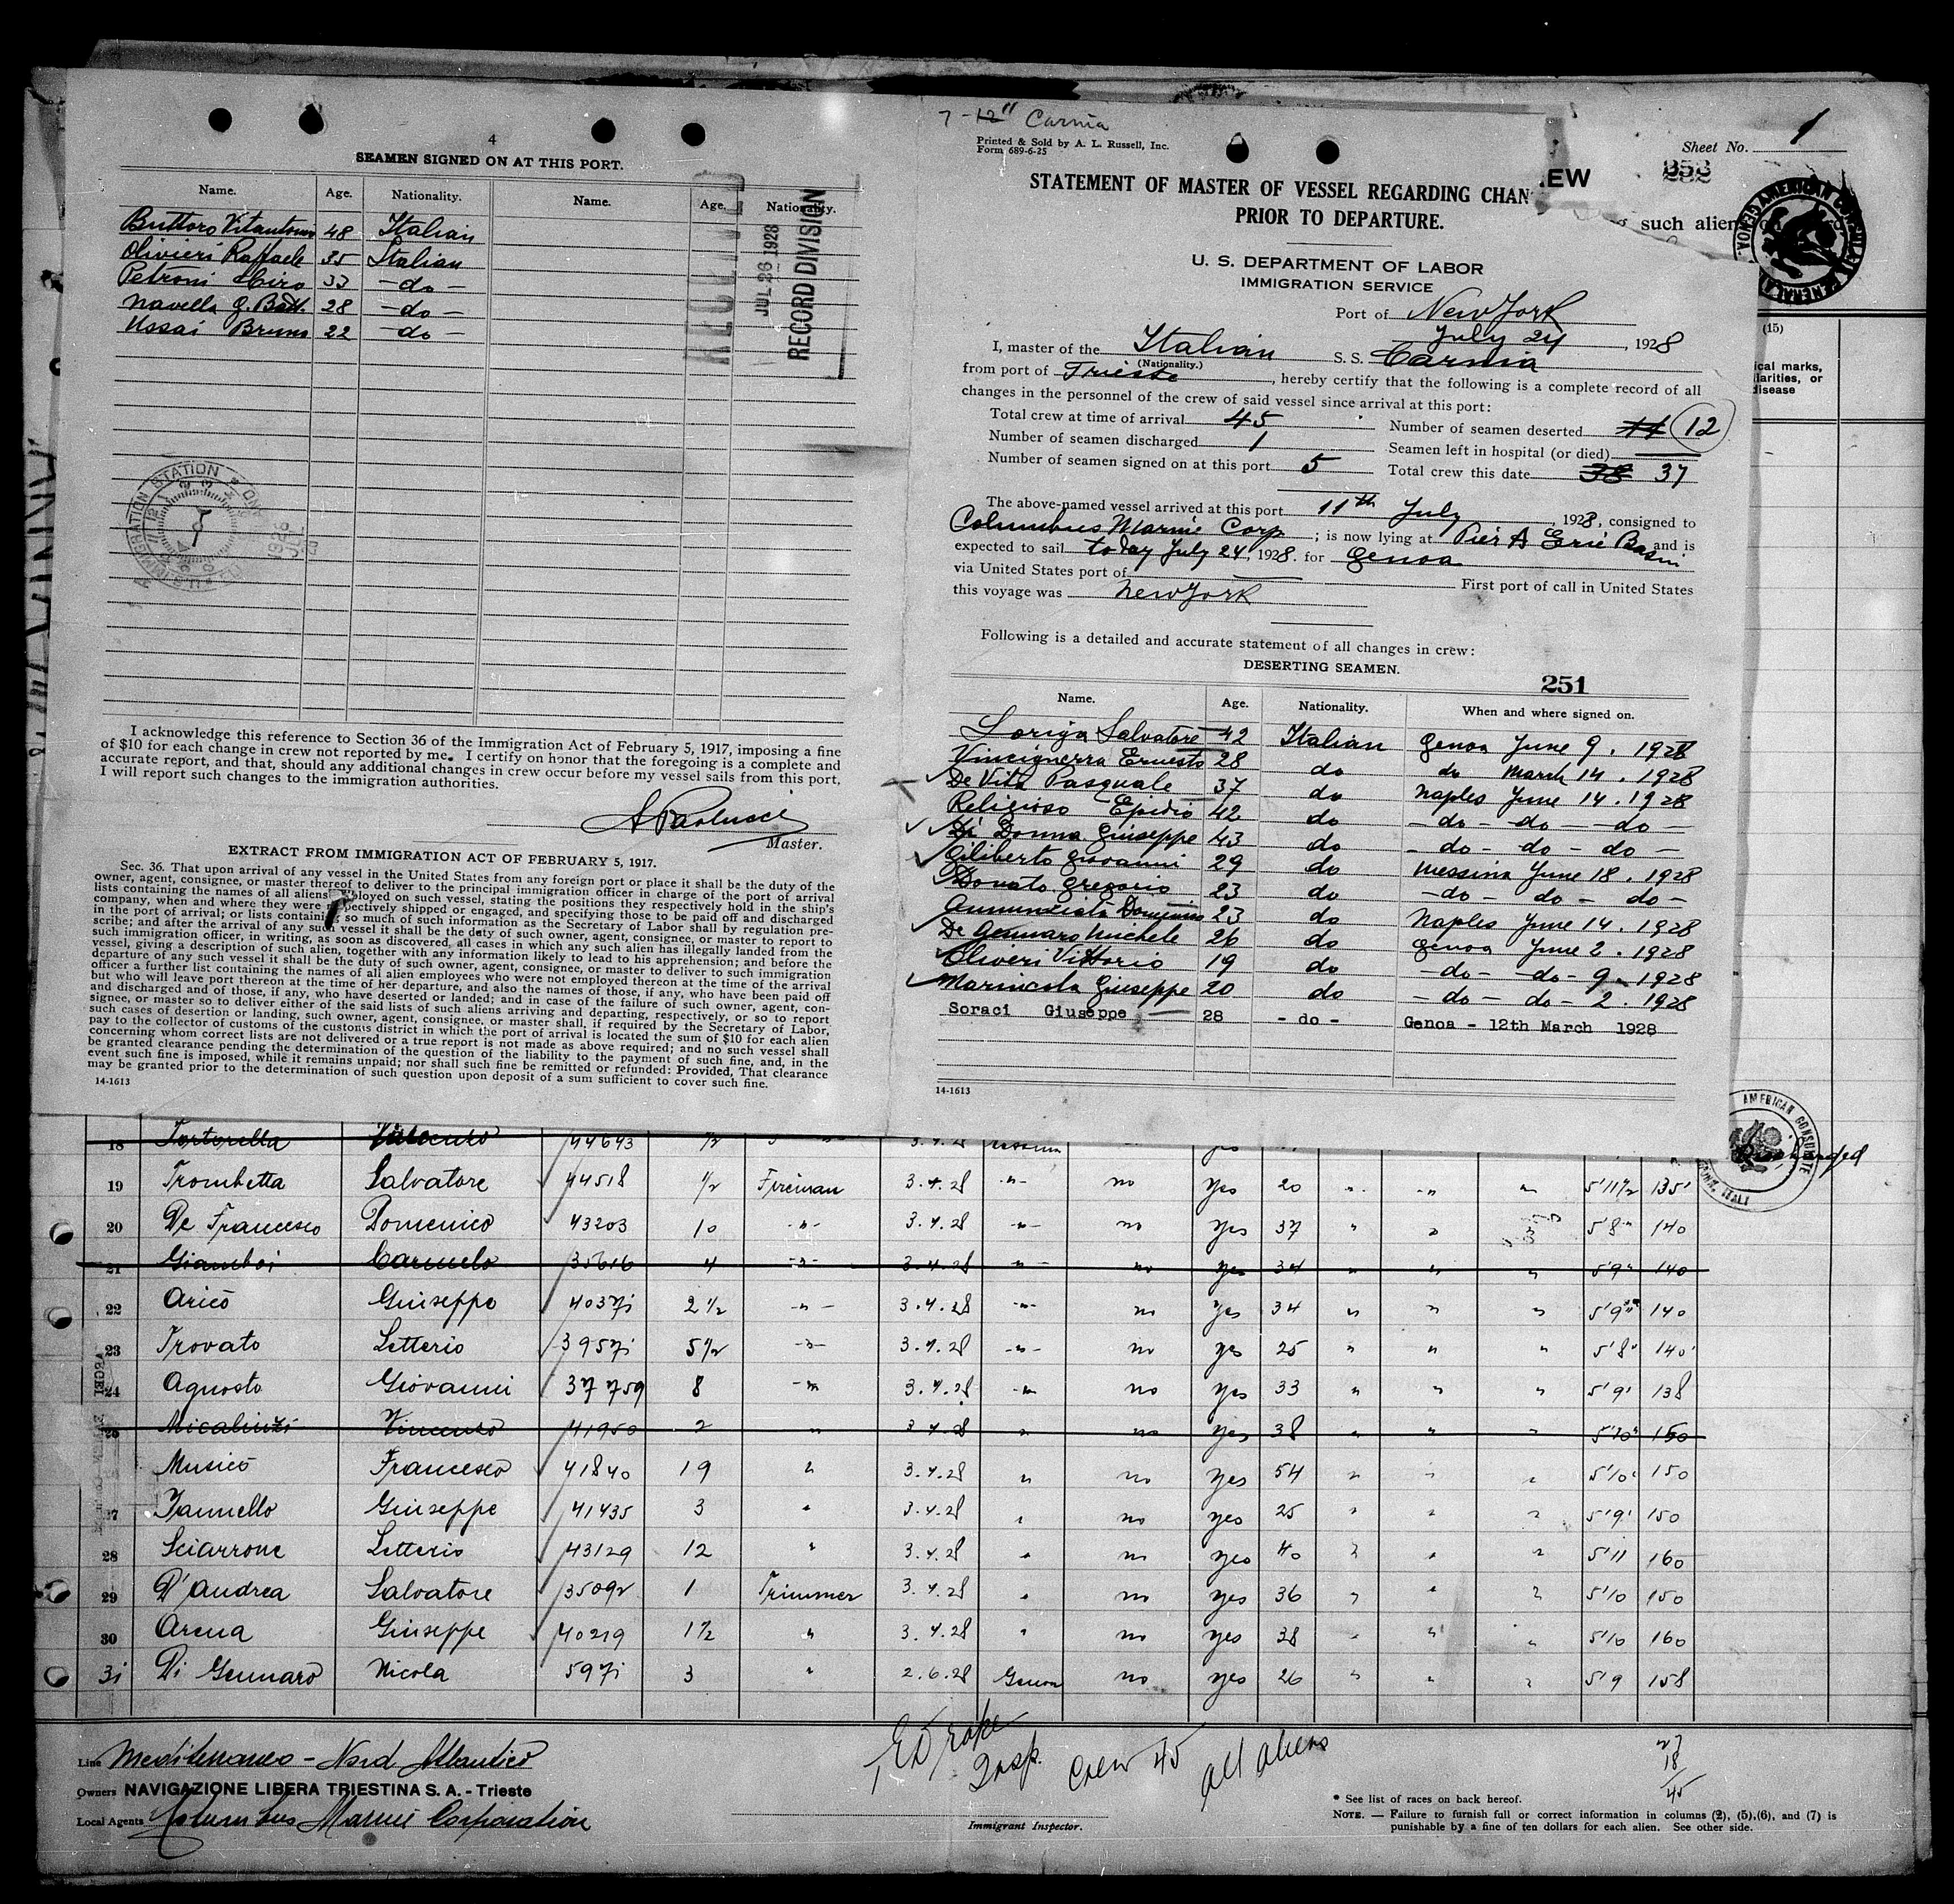 4
SEAMEN SIGNED ON AT THIS PORT.
Name. Age. Nationality. Name. Age. Nationality.
Buttoro Vitantonio 48 Italian
Olivieri Raffaele 35 Italian
Petroni Ciro 33 - do -
Navella G. Batt. 28 - do -
Ussai Bruno 22 - do -
RECEIVED
JUL 26 1928
RECORD DIVISION
I acknowledge this reference to Section 36 of the Immigration Act of February 5, 1917, imposing a fine
of $10 for each change in crew not reported by me. I certify on honor that the foregoing is a complete and
accurate report, and that, should any additional changes in crew occur before my vessel sails from this port,
I will report such changes to the immigration authorities.
A Paolucci
Master.
EXTRACT FROM IMMIGRATION ACT OF FEBRUARY 5, 1917.
Sec. 36. That upon arrival of any vessel in the United States from any foreign port or place it shall be the duty of the
owner, agent, consignee, or master thereof to deliver to the principal immigration officer in charge of the port of arrival
lists containing the names of all aliens employed on such vessel, stating the positions they respectively hold in the ship's
company, when and where they were respectively shipped or engaged, and specifying those to be paid off and discharged
in the port of arrival; or lists containing so much of such information as the Secretary of Labor shall by regulation pre-
scribe; and after the arrival of any such vessel it shall be the duty of such owner, agent, consignee, or master to report to
such immigration officer, in writing, as soon as discovered, all cases in which any such alien has illegally landed from the
vessel, giving a description of such alien, together with any information likely to lead to his apprehension; and before the
departure of any such vessel it shall be the duty of such owner, agent, consignee, or master to deliver to such immigration
officer a further list containing the names of all alien employees who were not employed thereon at the time of the arrival
but who will leave port thereon at the time of her departure, and also the names of those, if any, who have been paid off
and discharged and of those, if any, who have deserted or landed; and in case of the failure of such owner, agent, con-
signee, or master so to deliver either of the said lists of such aliens arriving and departing, respectively, or so to report
such cases of desertion or landing, such owner, agent, consignee, or master shall, if required by the Secretary of Labor,
pay to the collector of customs of the customs district in which the port of arrival is located the sum of $10 for each alien
concerning whom correct lists are not delivered or a true report is not made as above required; and no such vessel shall
be granted clearance pending the determination of the question of the liability to the payment of such fine, and, in the
event such fine is imposed, while it remains unpaid; nor shall such fine be remitted or refunded: Provided, That clearance
may be granted prior to the determination of such question upon deposit of a sum sufficient to cover such fine.
14-1613
7 - 12 11 Carnia
Printed & Sold by A. L. Russell, Inc.
Form 689-6-25
STATEMENT OF MASTER OF VESSEL REGARDING CHAN
PRIOR TO DEPARTURE.
U. S. DEPARTMENT OF LABOR
IMMIGRATION SERVICE
Port of New York
July 24, 1928
I, master of the Italian S. S. Carnia
(Nationality.)
from port of Trieste, hereby certify that the following is a complete record of all
changes in the personnel of the crew of said vessel since arrival at this port:
Total crew at time of arrival 45 Number of seamen deserted 11 12
Number of seamen discharged 1 Seamen left in hospital (or died)
Number of seamen signed on at this port 5 Total crew this date 38 37
The above-named vessel arrived at this port 11th July 1928, consigned to
Columbus Marine Corp; is now lying at Pier A Erie Basin and is
expected to sail today July 24, 1928. for Genoa
via United States port of First port of call in United States
this voyage was New York
Following is a detailed and accurate statement of all changes in crew:
DESERTING SEAMEN.
251
Name. Age. Nationality. When and where signed on.
Loriga Salvatore 42 Italian Genoa June 9. 1928
Vinciguerra Ernesto 28 do do March 14. 1928
De Vita Pasquale 37 do Naples June 14. 1928
Religioso Epidio 42 do - do - do - do -
Di Donna Giuseppe 43 do - do - do - do -
Giliberto Giovanni 29 do Messina June 18. 1928
Donato Gregorio 23 do - do - do - do -
Annunziata Domenico 23 do Naples June 14. 1928
De Gennaro Michele 26 do Genoa June 2. 1928
Oliveri Vittorio 19 do - do - do - 9 - 1928
Marincola Giuseppe 20 do - do - do - 2. 1928
Soraci Giuseppe 28 - do - Genoa - 12th March 1928
14-1613
Sheet No. 1
EW
252
such alien
(15)
ical marks,
liarities, or
disease
AMERICAN CONSULATE GENERAL GENOA
18 Tortorella 44643 1/2 3.4.28 yes Discharged
19 Trombetta Salvatore 44518 1/2 Fireman 3.4.28 -"- no yes 20 " -"- " 5'11½ 135
20 De Francesco Domenico 43203 10 -"- 3.4.28 -"- no yes 37 " " 5'8" 140
21 Giamboi Carmelo 35616 4 -"- 3.4.28 -"- no yes 34 " " " 5'9" 140
22 Aricò Giuseppe 40371 2½ -"- 3.4.28 -"- no yes 34 " " " 5'9" 140
23 Trovato Letterio 39571 5½ -"- 3.4.28 -"- no yes 25 " " " 5'8" 140
24 Agnosto Giovanni 37759 8 -"- 3.4.28 -"- no yes 33 " " " 5'9' 138
25 Micalizzi Vincenzo 41950 2 " 3.4.28 " no yes 38 " " " 5'10" 150
Musicò Francesco 41840 19 " 3.4.28 " no yes 54 " " " 5'10" 150
27 Iannello Giuseppe 41435 3 " 3.4.28 " no yes 25 " " " 5'9' 150
28 Sciarrone Letterio 43129 12 " 3.4.28 " no yes 40 " " " 5'11 160
29 D'Andrea Salvatore 35092 1 Trimmer 3.4.28 " no yes 36 " " " 5'10 150
30 Arena Giuseppe 40219 1½ " 3.4.28 " no yes 38 " " " 5'10 160
31 Di Gennaro Nicola 5971 3 " 2.6.28 Genoa no yes 26 " " " 5'9 158
Line Mediterraneo - Nord Atlantico
Owners NAVIGAZIONE LIBERA TRIESTINA S. A. - Trieste
Local Agents Columbus Marine Corporation
Insp. Crew 45 all aliens
Immigrant Inspector.
27
18
45
* See list of races on back hereof.
NOTE. — Failure to furnish full or correct information in columns (2), (5), (6), and (7) is
punishable by a fine of ten dollars for each alien. See other side.